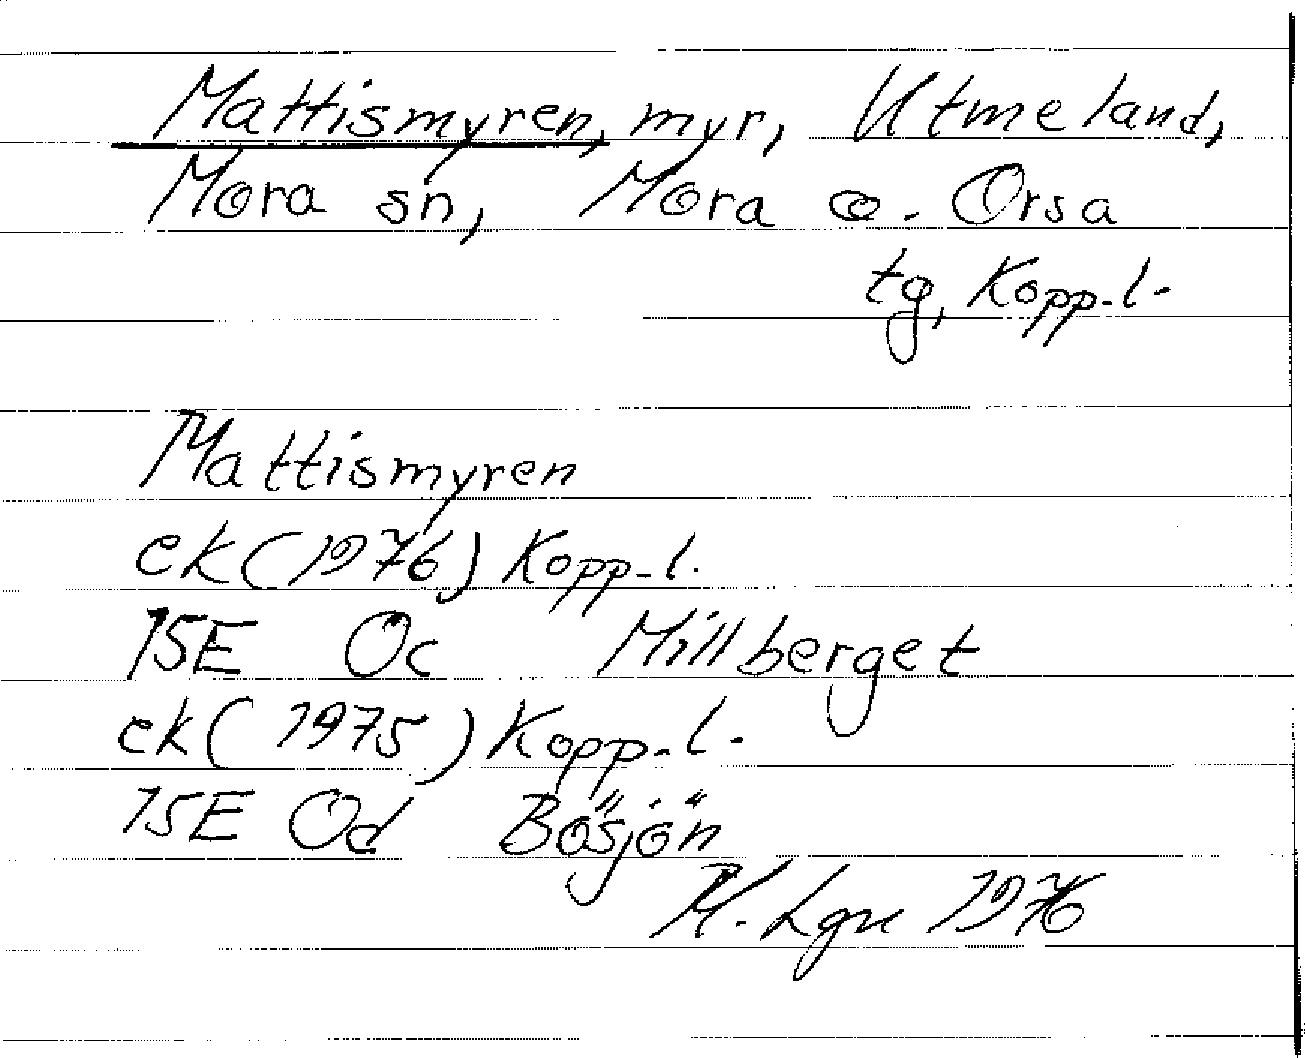 Mattismyren, myr, Utmeland,
Mora sn, Mora o. Orsa
tg, Kopp.l.
Mattismyren
ek (1976) Kopp.l.
15E 0c Millberget
ek (1975) Kopp.l.
15E 0d Bösjön
M. Lgn 1976